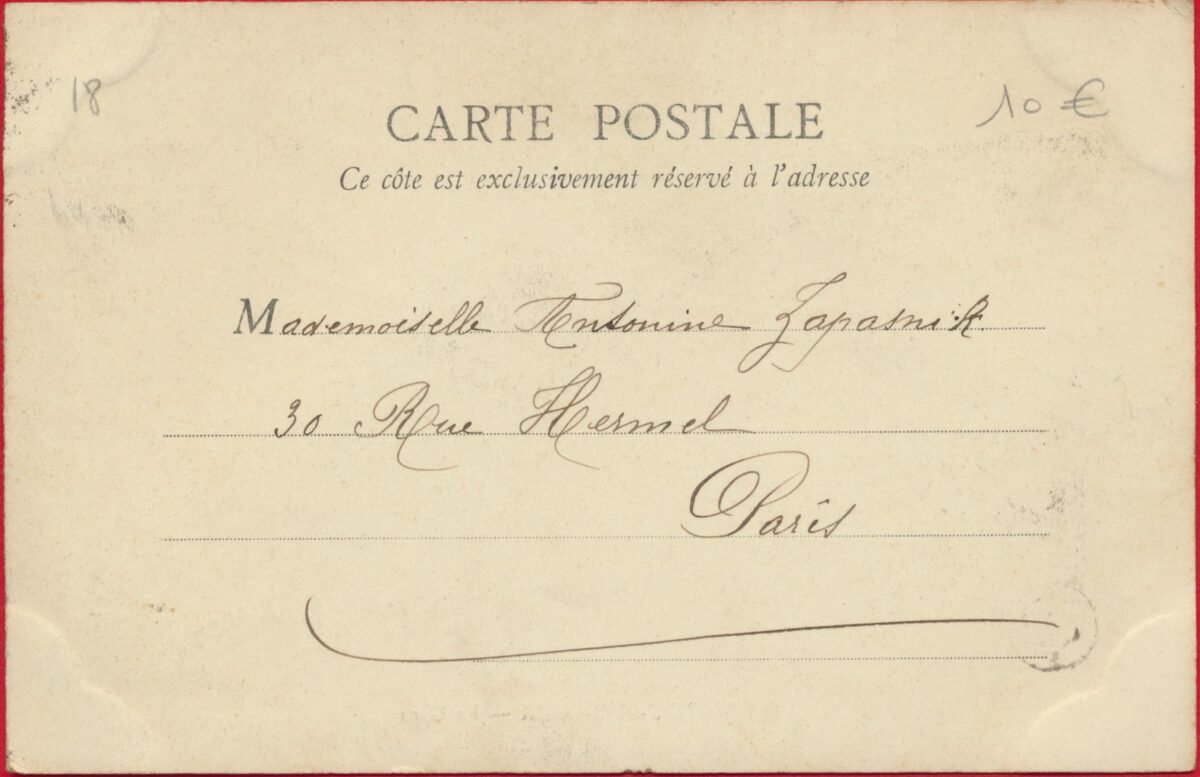 18
10 €
CARTE POSTALE
Ce côte est exclusivement réservé à l'adresse
Mademoiselle Antonine Zapasnik
30 Rue Hermel
Paris